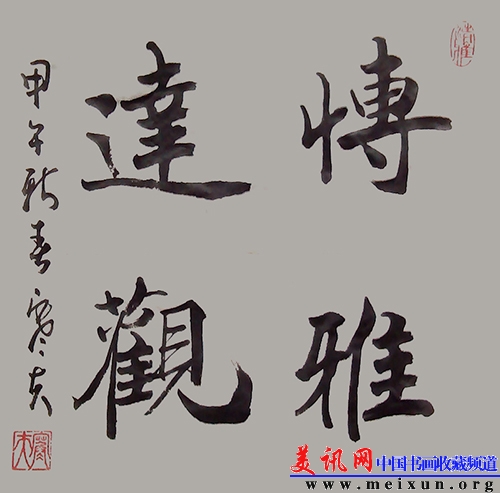 愽雅
達觀
甲午新春寒夫
美讯网中国书画收藏频道
www.meixun.org